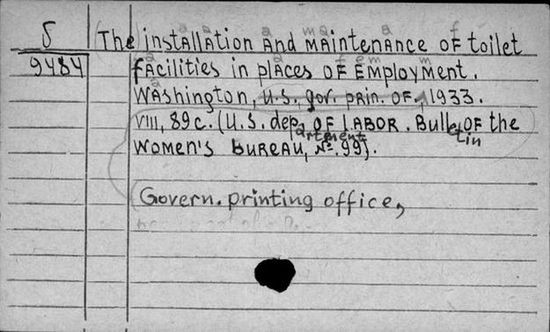 5 The installation and maintenance of toilet
9484 facilities in places of employment.
Washington, U.S. gov. prin. of., 1933.
VIII, 89c. (U.S. department of labor. Bulletin of the
Women's bureau, № 99).
Govern. printing office,